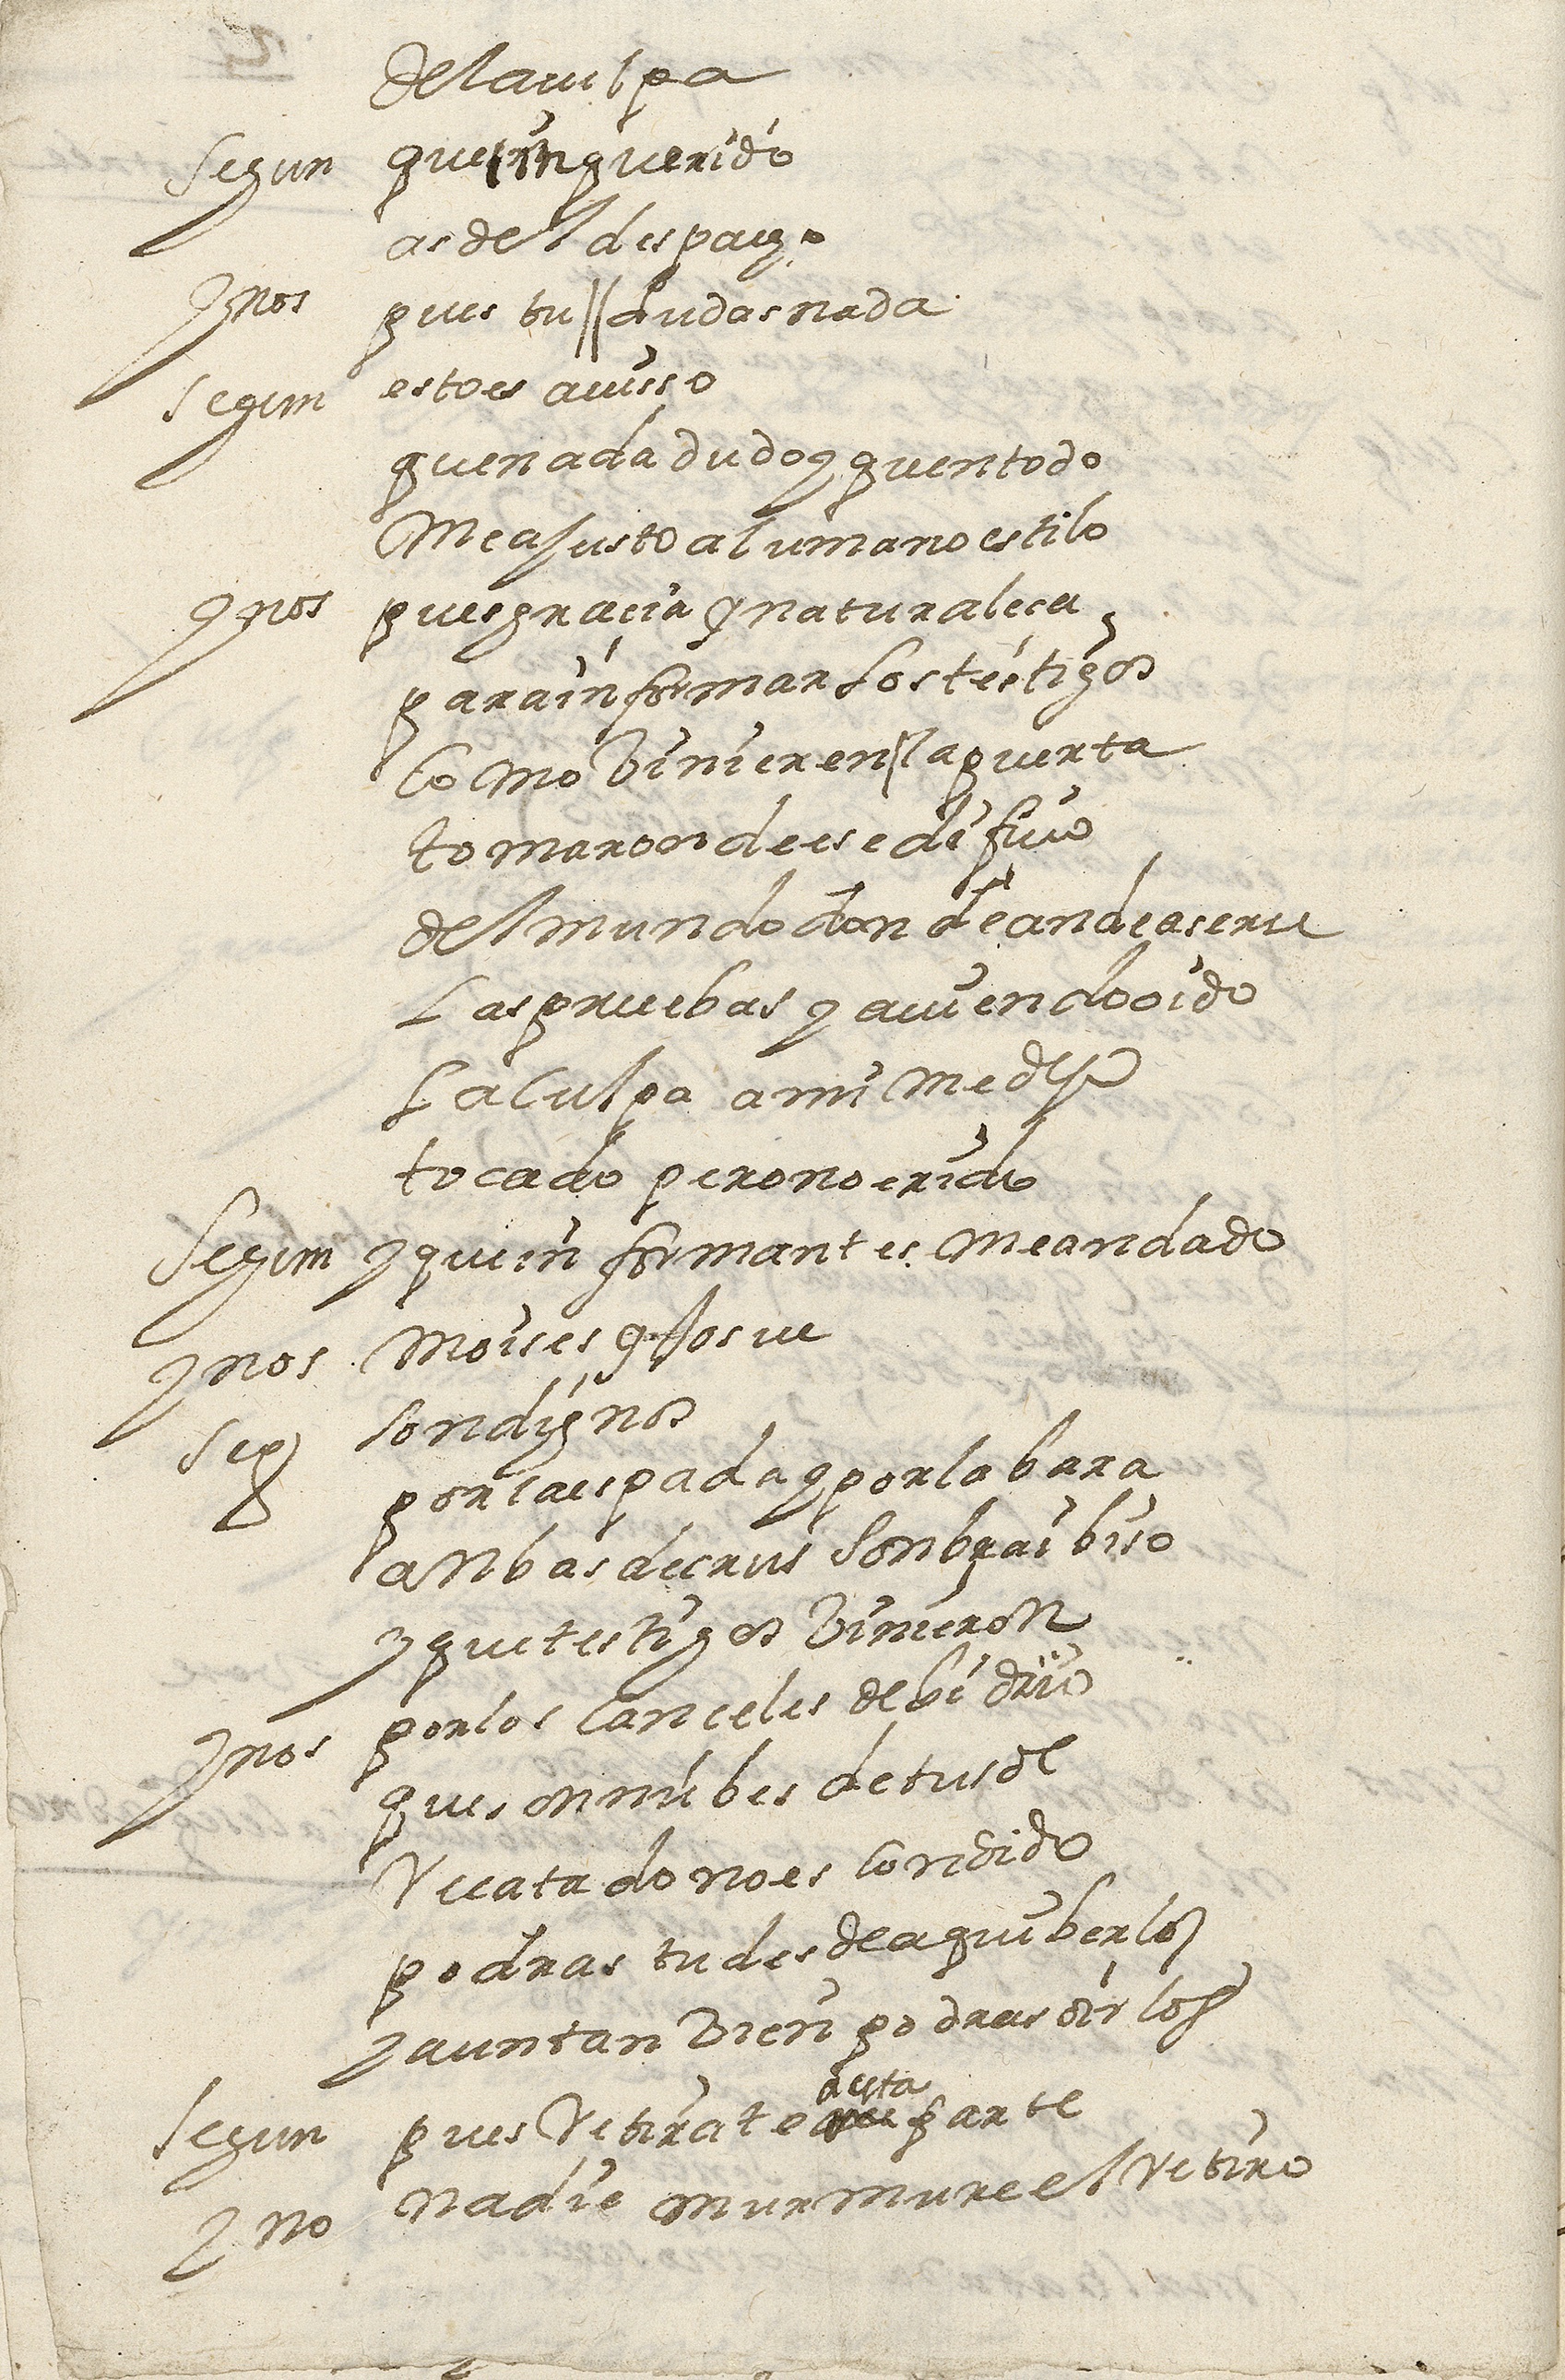 de la culpa
Segun que inquerido
as de el despacho
ynos pues tu dudas nada
Segun esto es auiso
que nada dudo y que en todo
Me ajusto al umano estilo
ynos pues gracia y naturaleça
para informar los testigos
Como binieren la puerta
tomaron de ese edificio
del mundo donde an de aserse
Las pruebas y auiendo oido
La culpa a mi me dejo
tocado pero no erido
Segun y que informantes me an dado
ynos Moises y Josue
Seg son dignos
por la espada y por la bara
anbas de crus sonbra i biso
y que testigos binieron
ynos por los canceles de bidrio
que son nubes de tus de
Recatado no escondido
podras tu desde aqui berlos
y aun tan bien podras oirlos
Segun pues Retirate a esta parte
yno nadie murmure el Retiro